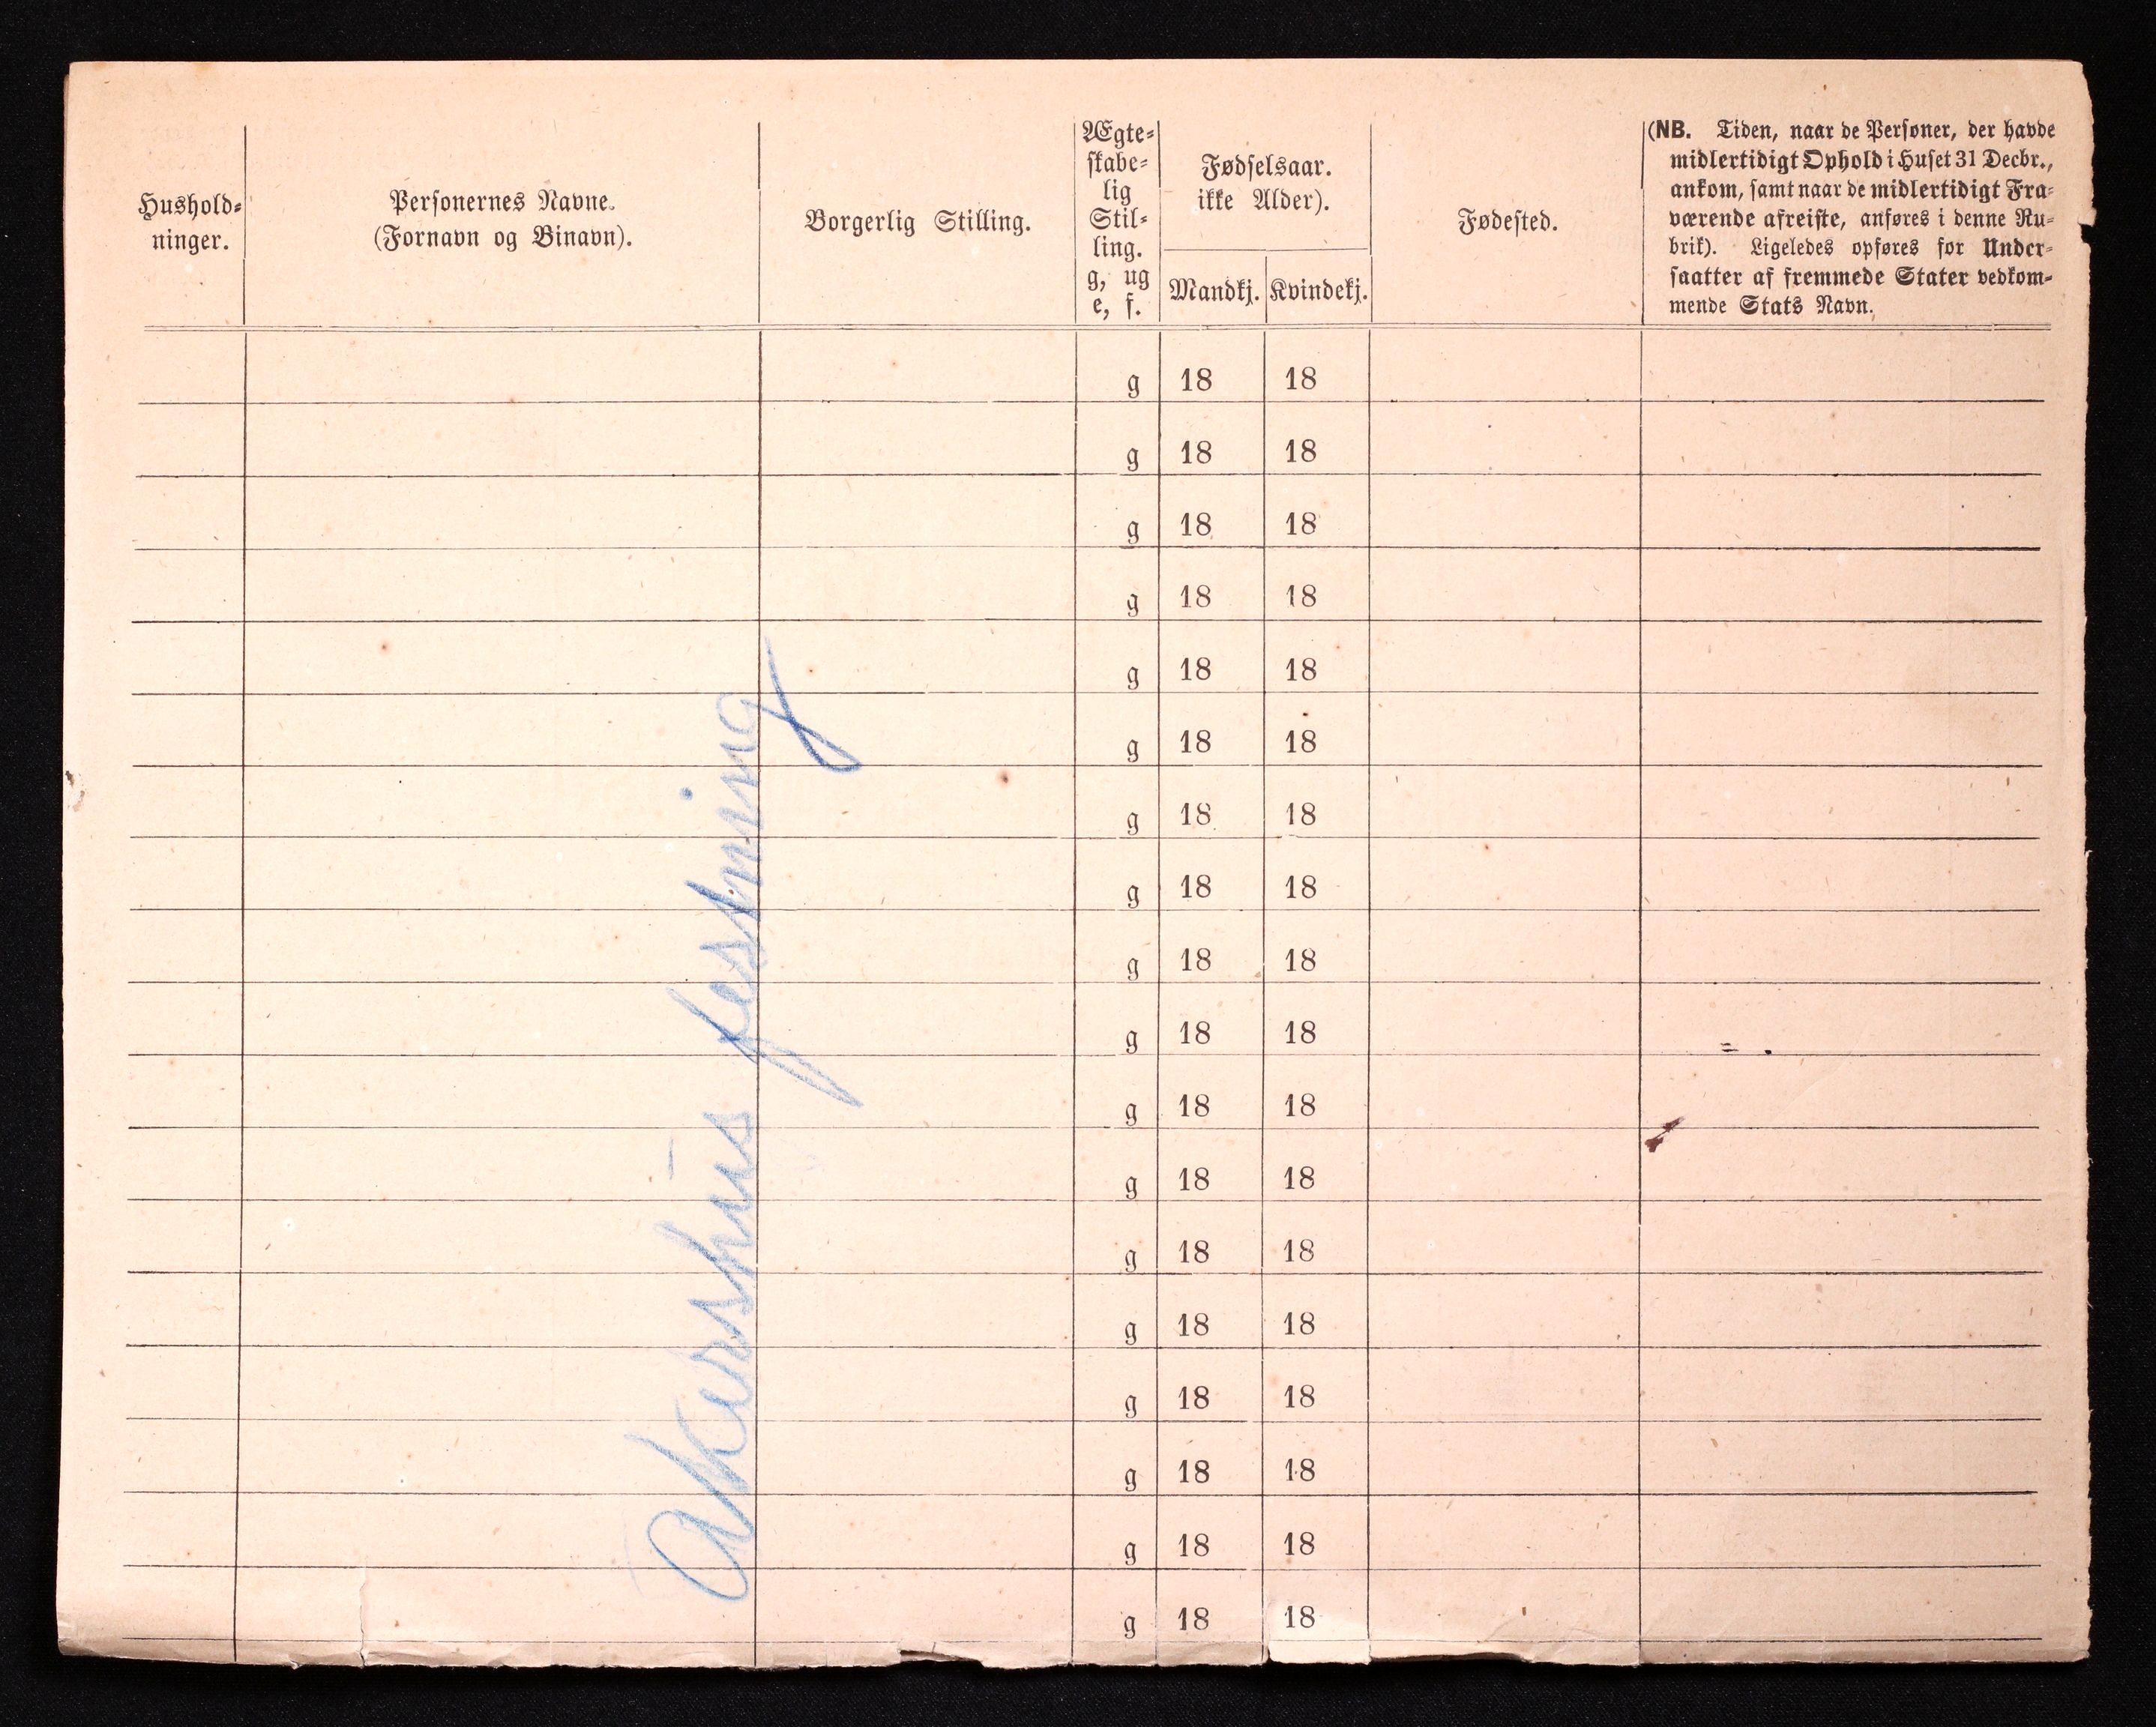 Hushold-
ninger.
Personernes Navne.
(Fornavn og Binavn).
Borgerlig Stilling.
Ægte-
skabe-
lig
Stil-
ling.
g, ug
e, f.
Fødselsaar.
ikke Alder).
Mandkj. Kvindekj.
Fødested.
(NB. Tiden, naar de Personer, der havde
midlertidigt Ophold i Huset 31 Decbr.,
ankom, samt naar de midlertidigt Fra-
værende afreiste, anføres i denne Ru-
brik). Ligeledes opføres for Under-
saatter af fremmede Stater vedkom-
mende Stats Navn.
g 18 18
g 18 18
g 18 18
g 18 18
g 18 18
g 18 18
g 18 18
g 18 18
g 18 18
g 18 18
g 18 18
g 18 18
g 18 18
g 18 18
g 18 18
g 18 18
g 18 18
g 18 18
Akershus festning